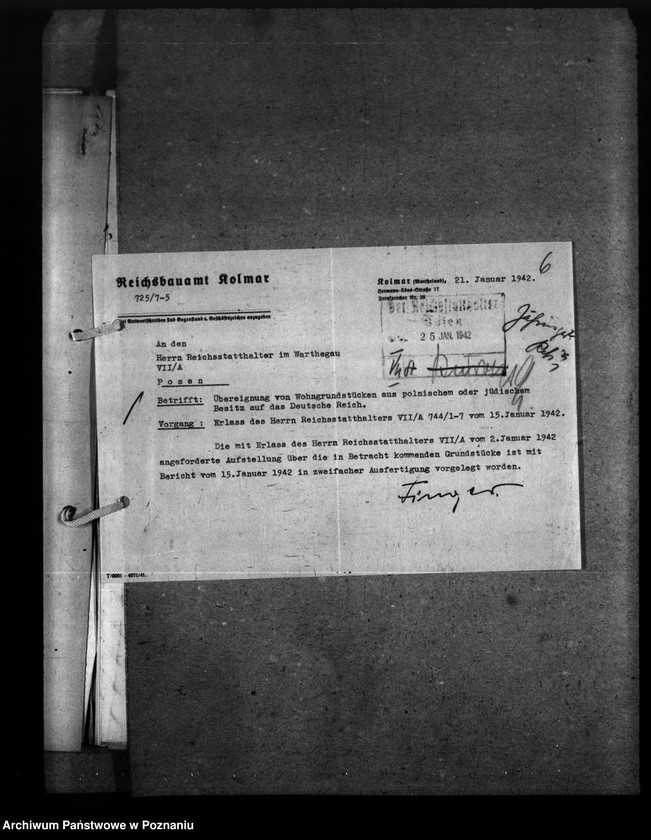 6
Reichsbauamt Kolmar
725/7-5
Bei Antwortschreiben sind Gegenstand u. Geschäftszeichen anzugeben
Kolmar (Wartheland), 21. Januar 1942.
Hermann-Löns-Straße 17
Fernsprecher Nr. 28
Der Reichsstatthalter
Posen
25 JAN. 1942
An den
Herrn Reichsstatthalter im Warthegau
VII/A
Posen
Betrifft: Übereignung von Wohngrundstücken aus polnischem oder jüdischem
Besitz auf das Deutsche Reich.
Vorgang : Erlass des Herrn Reichsstatthalters VII/A 744/1-7 vom 15.Januar 1942.
Die mit Erlass des Herrn Reichsstatthalters VII/A vom 2.Januar 1942
angeforderte Aufstellung über die in Betracht kommenden Grundstücke ist mit
Bericht vom 15.Januar 1942 in zweifacher Ausfertigung vorgelegt worden.
Archiwum Państwowe w Poznaniu